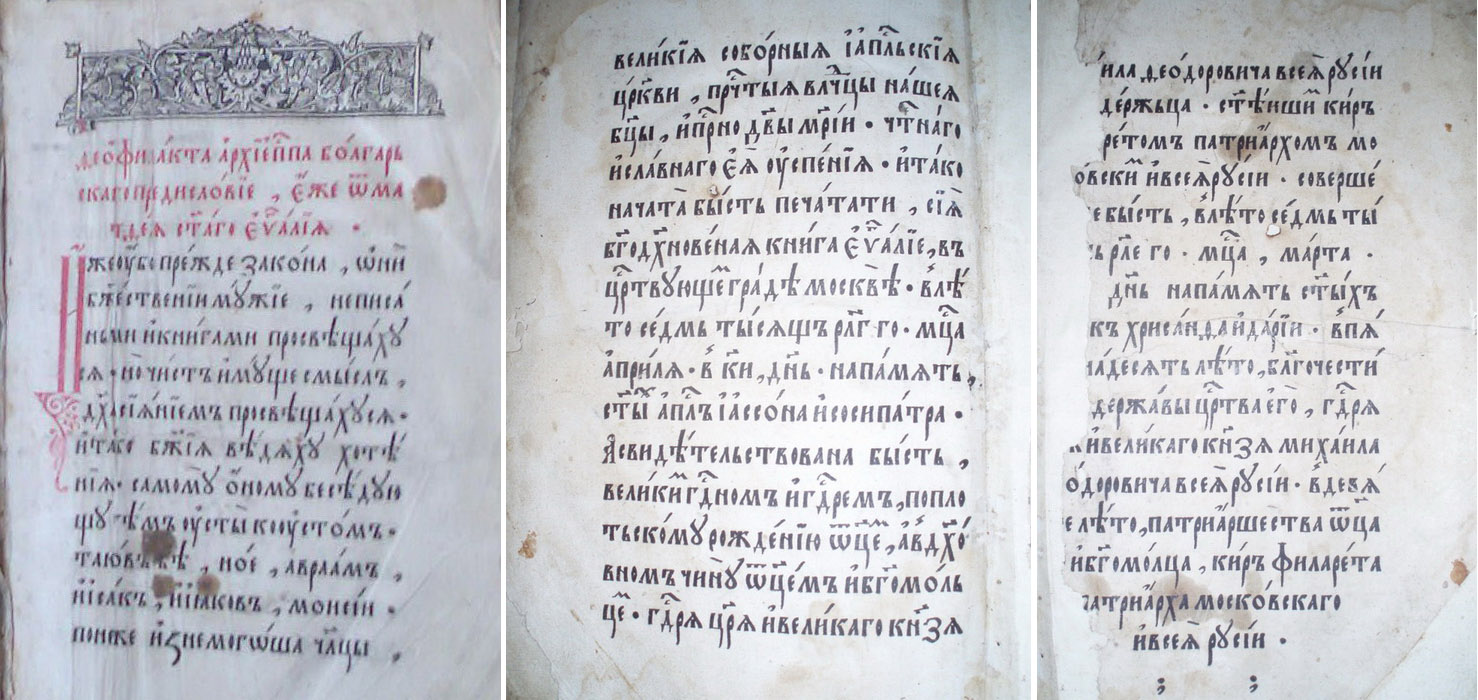 Ѳеѡфила́кта а҆рхїепⷭ҇па болгарь
скаго предисло́вїе , є҆́же ѿ ма
тѳе́а ст҃а́го є҆ѵⷢ҇а́лїѧ .
И҆̀же ᲂу҆́бѡ пре́жде зако́на , ѻ҆нѝ
бжⷭ҇твенїи му́жїе , не писа́
ными кни́гами просвѣща́ху
сѧ . но чи́стъ и҆му́ще смы́слъ ,
дх҃а сїѧ́нїемъ просвѣща́хусѧ .
и҆ та́ко бж҃їѧ вѣ́дѧху хотѣ́
нїѧ . самому̀ ѻ҆́ному бесѣ́дую
щу тѣ́мъ ᲂу҆сты̀ ко ᲂу҆стѡ́мъ .
но́е , авраа́мъ ,
и҆саа́къ , и҆ꙗ́ковъ , мѡисе́й .
поне́же и҆знемого́ша чл҃цы ,
вели́кїѧ собо́рныѧ і҆ а҆пⷭ҇льскїѧ
цр҃кви , прчⷭ҇тыѧ влⷣчцы на́шеѧ
бц҃ы , и҆ прⷭ҇но дв҃ы мр҃і́и . чтⷭ҇на́го
и҆ сла́внаго є҆ѧ̀ ᲂу҆спе́нїѧ . и҆ та́ко
нача́та бы́сть печа́тати , сїѧ̀
бг҃одх҃нове́наѧ кни́га є҆ѵⷢ҇а́лїе , въ
црⷭ҇твующемъ гра́дѣ москвѣ̀ . в лѣ́
то се́дмь ты́сѧщъ рл҃г го . мцⷭ҇а
а҆прі́лѧ . в к҃и , дн҃ь . на па́мѧть ,
ст҃ы́хъ а҆пⷭ҇лъ і҆ассо́на и҆ сосипа́тра .
А҆ свидѣ́тельствована бы́сть ,
вели́кимъ гдⷭ҇номъ и҆ гдⷭ҇ремъ , по пло
тьско́му рожде́нїю ѿц҃емъ , а҆ в дх҃о́
вномъ чи́ну ѿц҃е́мъ и҆ бг҃омо́ль
цемъ . гдⷭ҇рѧ цр҃ѧ̀ и҆ вели́каго кн҃зѧ
ила ѳео́доровича всеѧ̀ русі́и
де́ржьца . ст҃ѣ́ишимъ ки́ръ
ре́томъ патриа́рхомъ мо
о́вскимъ и҆ всеѧ̀ русі́и . соверше́
е бы́сть , в лѣ́то се́дмь ты́
ъ рл҃е го . мцⷭ҇а , ма́рта .
дн҃ь на па́мѧть ст҃ы́хъ
къ хриса́нѳа и҆ да́рїи . в пѧ́
на́десѧть лѣ́то , блг҃очести́
держа́вы црⷭ҇тва є҆го̀ , гдⷭ҇рѧ
и҆ вели́каго кн҃зѧ михаи́ла
о́доровича всеѧ̀ русі́и . в девѧ́
е лѣ́то , патриа́ршества ѿц҃а
и҆ бг҃омо́лца , ки́ръ филаре́та
патриа́рха моско́вскаго
и҆ всеѧ̀ русі́и .